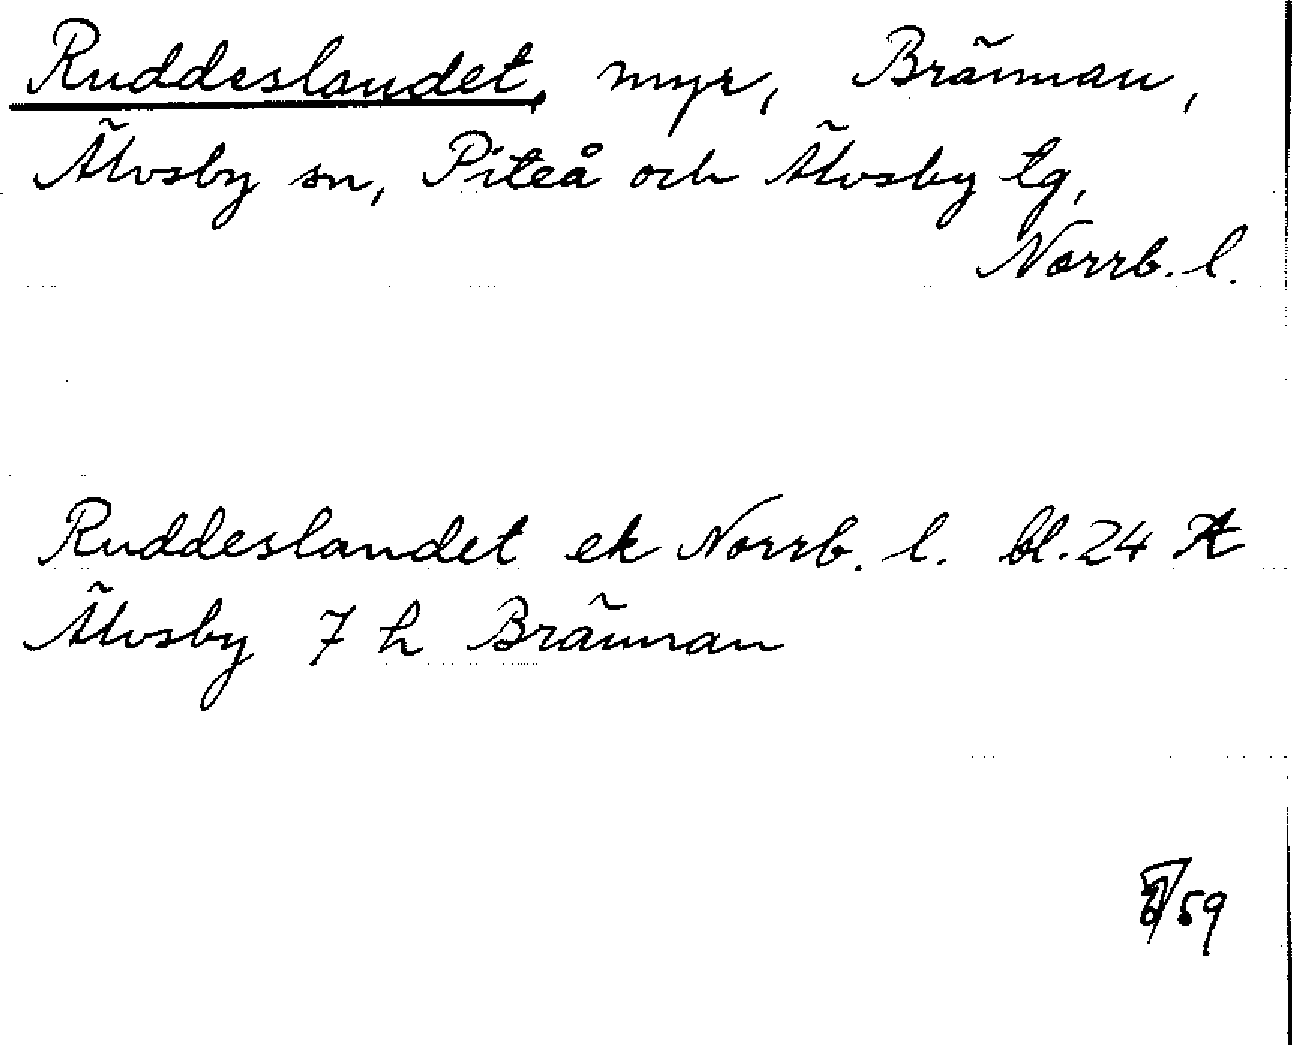 Ruddeslandet, myr, Brännan,
Älvsby sn, Piteå och Älvsby tg,
Norrb. l.
Ruddeslandet ek Norrb. l. bl. 24
Älvsby 7 h Brännan
59